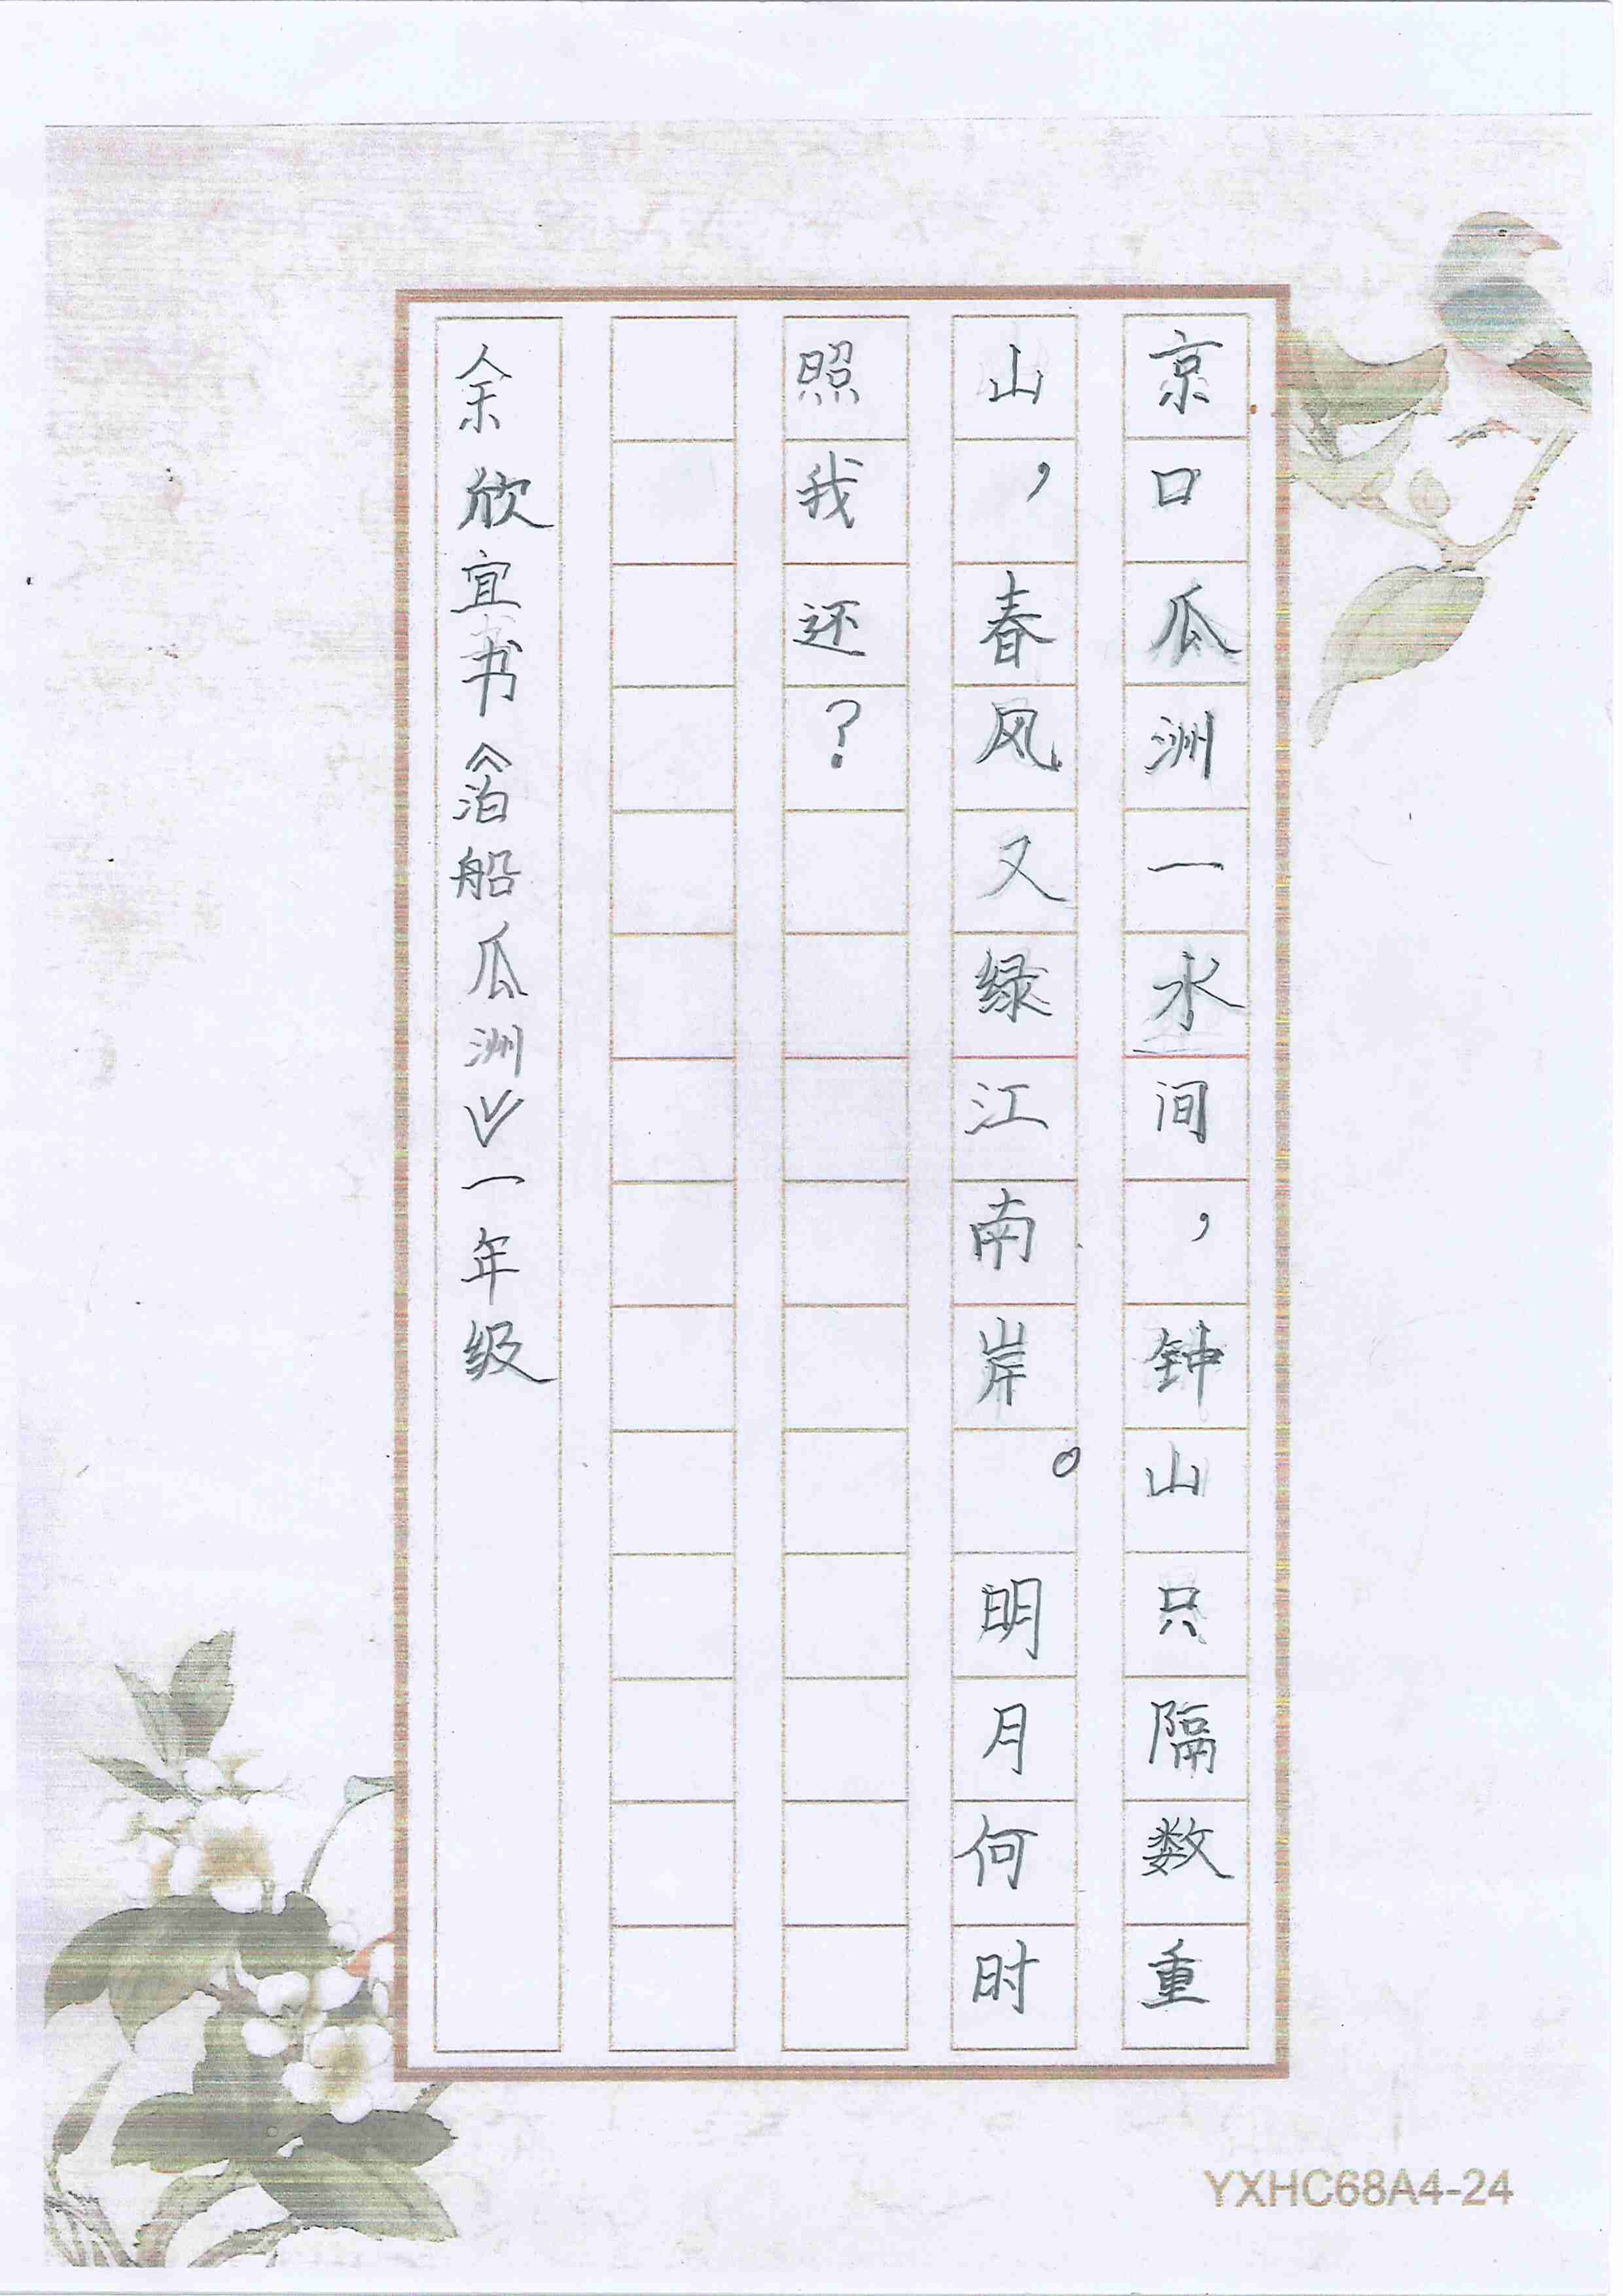 京口瓜洲一水间，钟山只隔数重
山，春风又绿江南岸。明月何时
照我还？
余欣宜书《泊船瓜洲》一年级
YXHC68A4-24